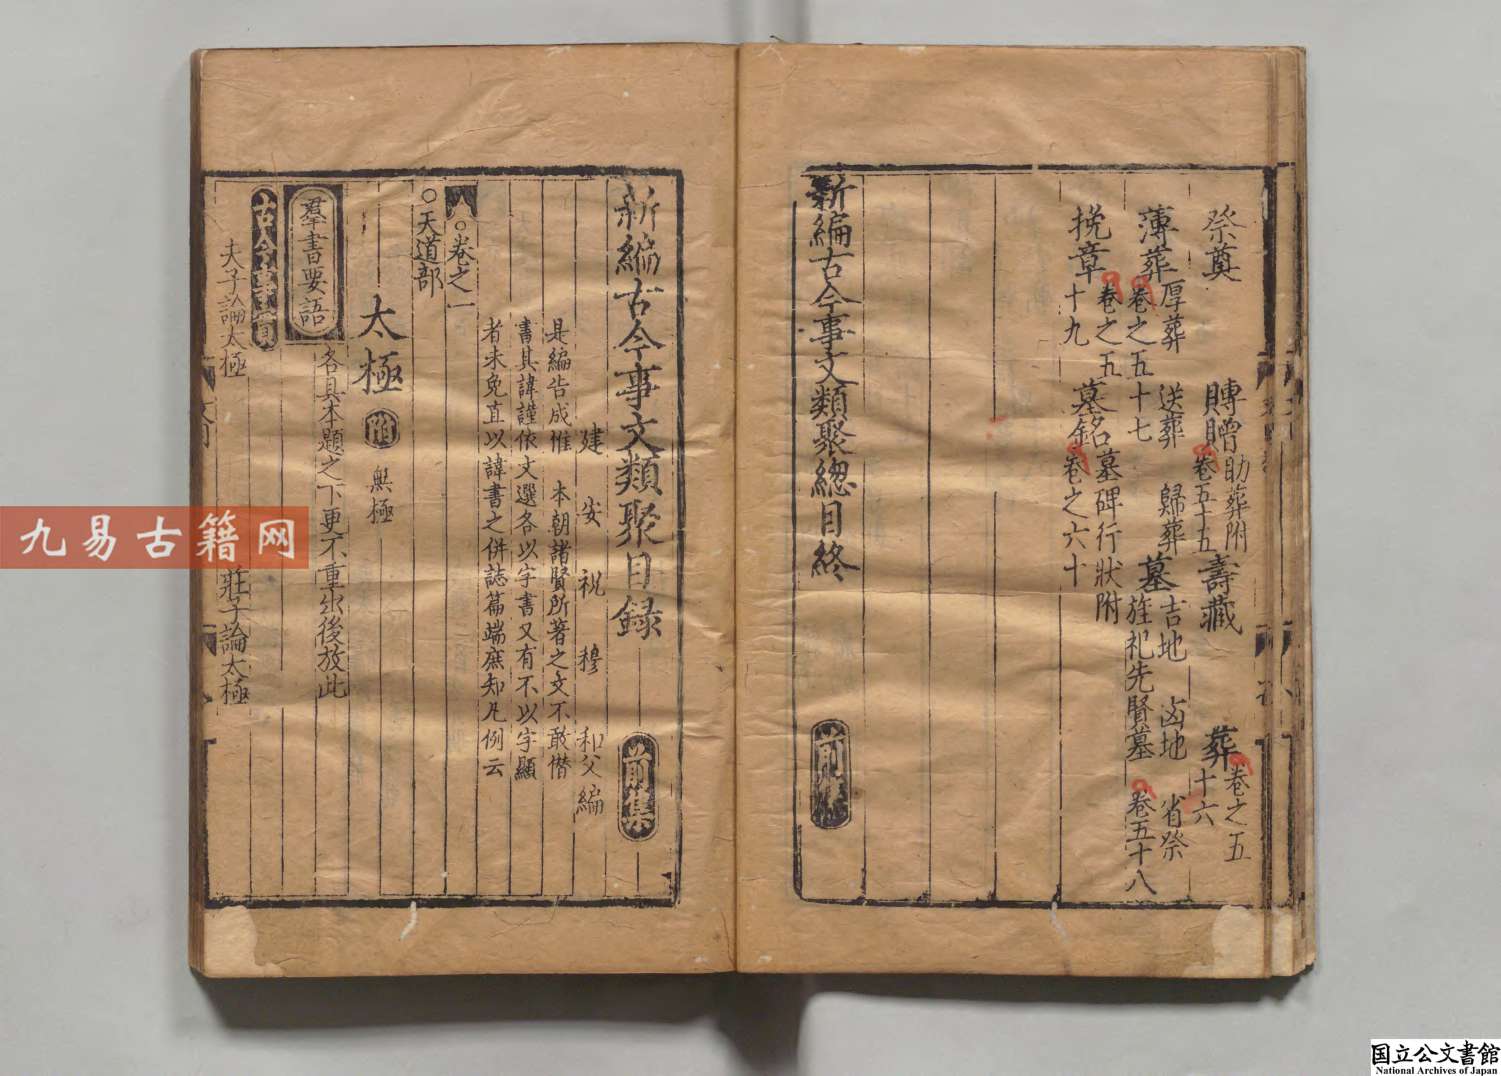 祭奠 賻贈助葬附卷五十五 壽藏 葬卷之五十六
薄葬厚葬卷之五十七 送葬 歸葬 墓吉地 凶地 省祭 旌祀先賢墓 卷五十八
挽章卷之五十九 墓銘墓碑行狀附卷之六十
新編古今事文類聚總目終 前集
新編古今事文類聚目録 前集
建安祝穆和父編
是編告成惟 本朝諸賢所著之文不敢僭
書其諱謹依文選各以字書又有不以字顯
者未免直以諱書之併誌篇端庶知凡例云
卷之一
天道部
太極 附 無極
羣書要語 各具本題之下更不重出後放此
古今事實
夫子論太極 莊子論太極
九易古籍网
国立公文書館
National Archives of Japan